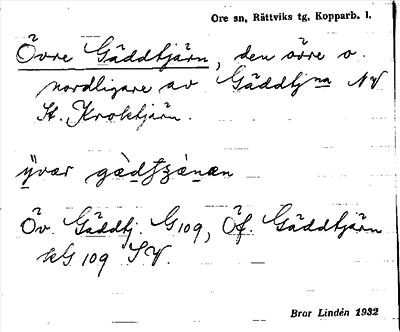 Ore sn, Rättviks tg, Kopparb. l.
Övre Gäddtjärn, den övre o.
nordligare av Gäddtjna NV
St. Kroktjärn.
Öv. Gäddtj. G109, Öf. Gäddtjärn
kG 109 SV.
Bror Lindén 1932